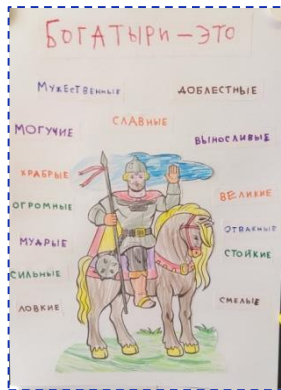 БОГАТЫРИ – ЭТО
МУЖЕСТВЕННЫЕ
ДОБЛЕСТНЫЕ
СЛАВНЫЕ
МОГУЧИЕ
ВЫНОСЛИВЫЕ
ХРАБРЫЕ
ВЕЛИКИЕ
ОГРОМНЫЕ
ОТВАЖНЫЕ
МУДРЫЕ
СТОЙКИЕ
СИЛЬНЫЕ
ЛОВКИЕ
СМЕЛЫЕ